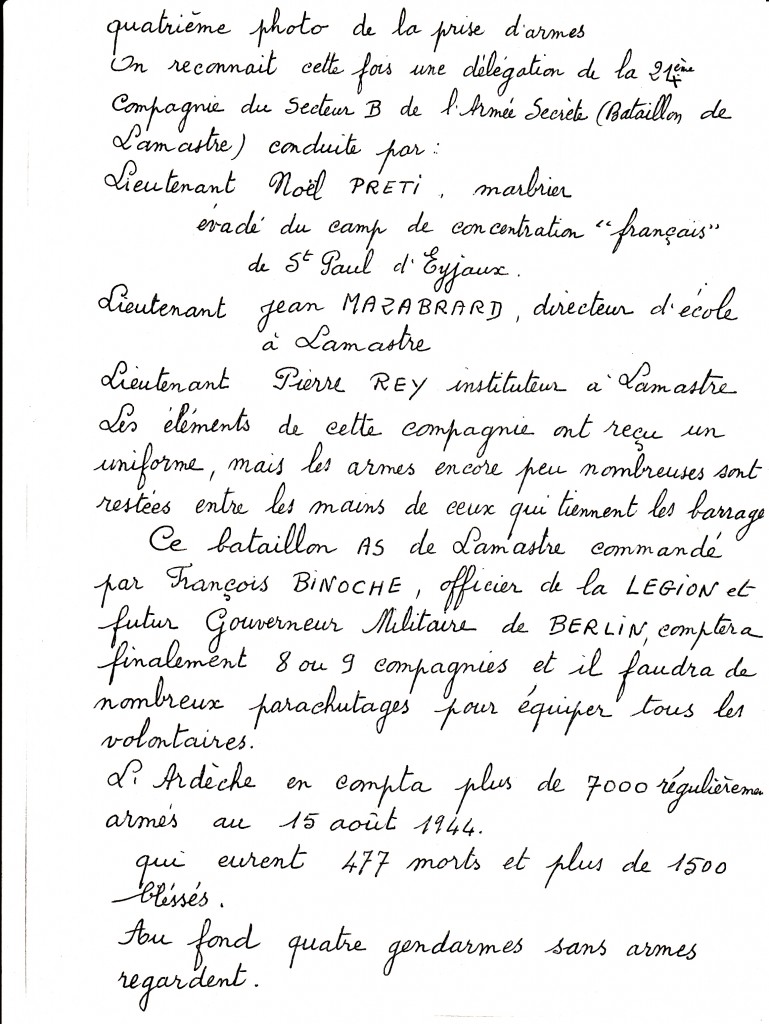 quatrième photo de la prise d'armes
On reconnait cette fois une délégation de la 21ème
Compagnie du Secteur B de l'Armée Secrète (Bataillon de
Lamastre) conduite par :
Lieutenant Noël PRETI, marbrier
évadé du camp de concentration "français"
de St Paul d'Eyjaux.
Lieutenant Jean MAZABRARD, directeur d'école
à Lamastre
Lieutenant Pierre REY instituteur à Lamastre
Les éléments de cette compagnie ont reçu un
uniforme, mais les armes encore peu nombreuses sont
restées entre les mains de ceux qui tiennent les barrage
Ce bataillon AS de Lamastre commandé
par François BINOCHE, officier de la LEGION et
futur Gouverneur Militaire de BERLIN, comptera
finalement 8 ou 9 compagnies et il faudra de
nombreux parachutages pour équiper tous les
volontaires.
L'Ardèche en compta plus de 7000 régulièremen
armés au 15 août 1944.
qui eurent 477 morts et plus de 1500
bléssés.
Au fond quatre gendarmes sans armes
regardent.